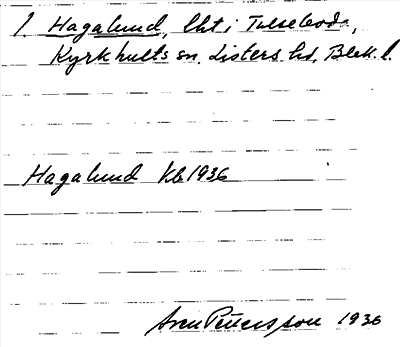 1 Hagalund, lht i Tulseboda,
Kyrkhults sn. Listers hd, Blek. l.
Hagalund Kb 1936
Petersson 1936